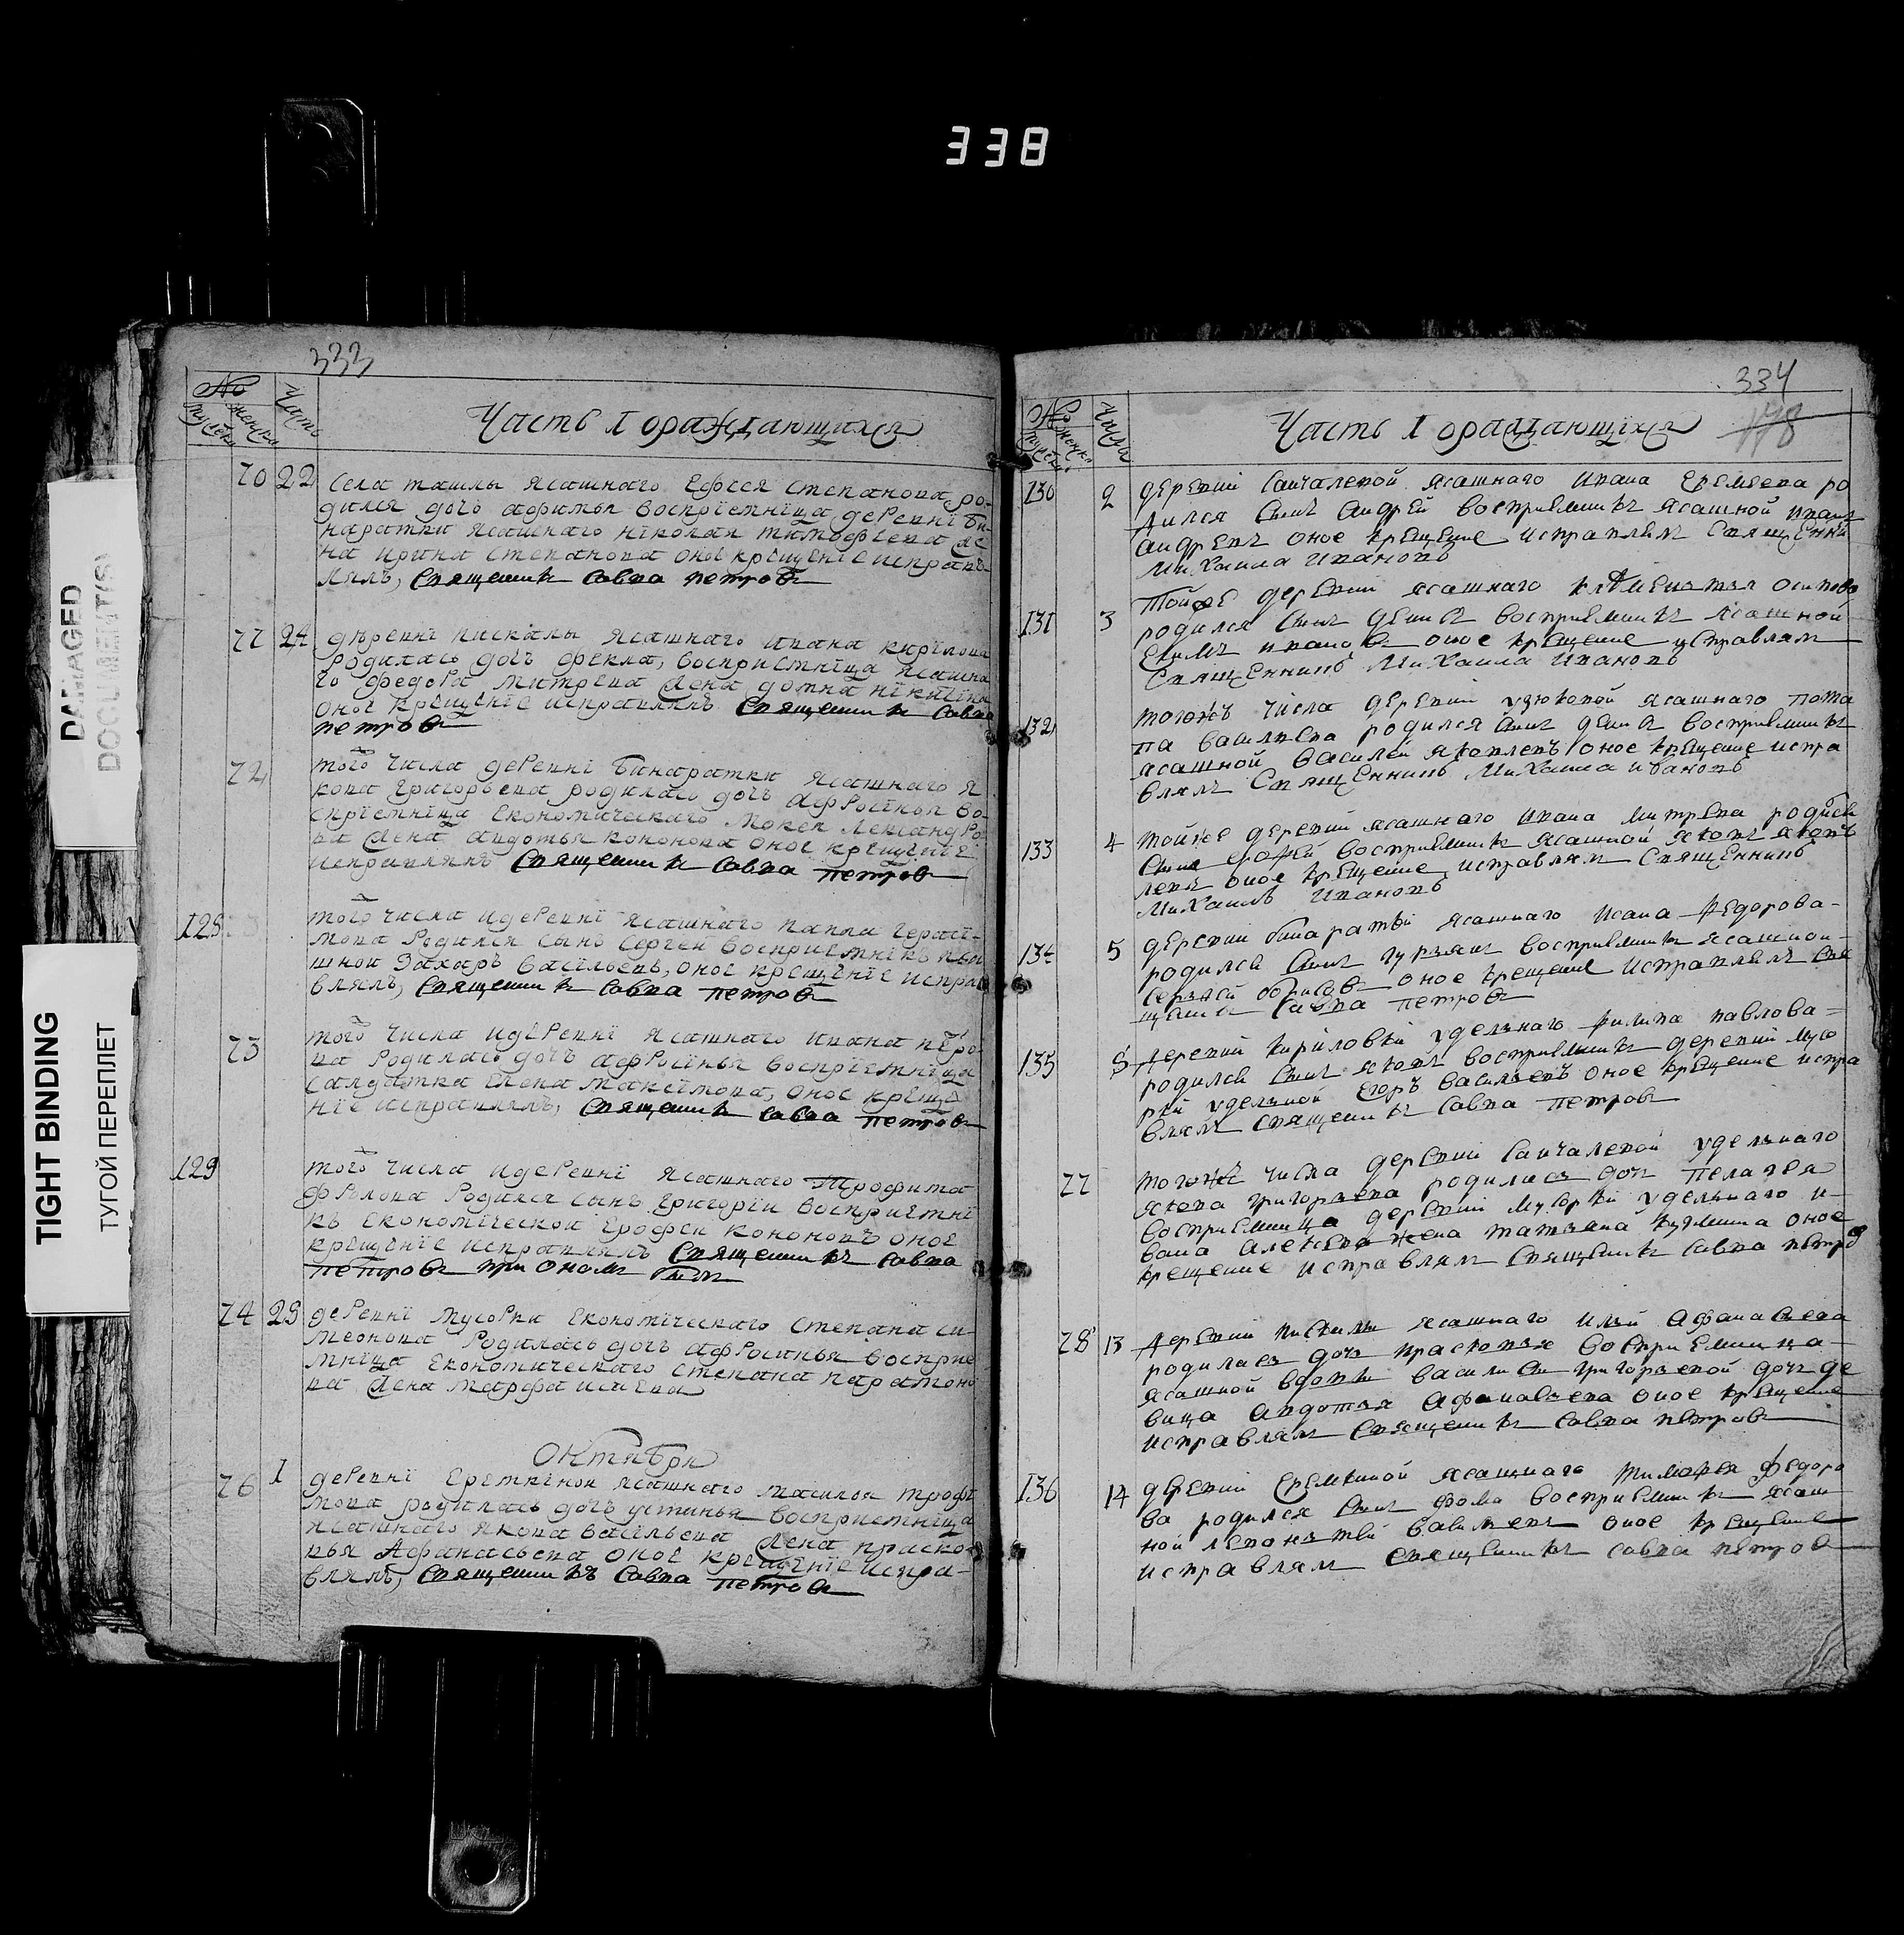 338
DAMAGED
DOCUMENT(S)
TIGHT BINDING
ТУГОЙ ПЕРЕПЛЕТ
333
№ Число
мужеска женска
Часть 1 ораждающихся
70 22 Села ташлы ясашнаго Ефсея степанова ро-
дился дочь афимья восприемница деревни би-
наратки ясашнаго николая тимофеева жe
на ирина степанова оное крещение исправ-
лялъ, Священникъ Савва петровъ
71 24 деревни пискалы ясашнаго ивана кирилова
родилась дочь фекла, восприемница ясашна
го федора митрева жена домна никитина
оное крещение исправлялъ Священникъ Савва
петровъ
72 того числа деревни бинаратки ясашнаго я
кова григорьева родилась дочь афросинья во-
сприемница економическаго мокея лександро
ва жена авдотья кононова оное крещение
исправлялъ Священникъ Савва петровъ
того числа идеревни ясашнаго павла гераси-
мова родился сынъ Сергеи восприемникъ яса
шнои Захаръ Васильевъ, оное крещение испра
влялъ, Священникъ Савва петровъ
73 того числа идеревни ясашнаго ивана петро-
ва родилась дочь афросинья восприемница
салдатка Елена максимова, оное креще
ние исправлялъ, Священникъ Савва петровъ
129 того числа идеревни ясашнаго трофима
фролова родился сынъ григории восприемни
къ економическои Ерофеи кононовъ оное
крещение исправлялъ Священникъ Савва
петровъ при ономъ былъ
74 25 деревни мусорки економическаго степана си-
меонова родилась дочь афросинья восприе
мница економическаго степана парамоно
ва жена марфа исаева
Октября
76 1 деревни Еремкинои ясашнаго трофи
мова родилась дочь устинья восприемница
ясашнаго якова васильева жена праско-
вья Афанасьева оное крещение испра-
влялъ, Священникъ Савва петровъ
334
178
№ Числа
мужеска женска
Часть 1 ораждающихся
130 2 деревни Санчалевой ясашнаго ивана Еремеева ро
дился сынъ андрей восприемникъ ясашной иванъ
андревъ оное крещение исправлялъ Священни
Михаила ивановъ
131 3 тойже деревни ясашнаго осипова
родился сынъ денисъ восприемникъ ясашной
Ефимъ ивановъ оное крещение исправлялъ
Священникъ Михаила ивановъ
132 тогожъ числа деревни узюковой ясашнаго пота
па васильева родился сынъ денисъ восприемникъ
ясашной василей яковлевъ оное крещение испра
влялъ Священникъ Михаила ивановъ
133 4 тойже деревни ясашнаго ивана митрева родился
сынъ ерофей восприемникъ ясашной яковъ яков
левъ оное крещение исправлялъ Священникъ
Михаилъ ивановъ
134 5 деревни бинаратки ясашнаго исава федорова
родился сынъ гурьянъ восприемникъ ясашной
сергей борисовъ оное крещение исправлялъ свя
щенникъ Савва петровъ
135 деревни кириловки удельнаго филипа павлова
родился сынъ яковъ восприемникъ деревни мусо
рки удельной Егоръ васильевъ оное крещение испра
влялъ священникъ Савва петровъ
77 тогоже числа деревни Санчалевой удельнаго
якова григорьева родилась дочь пелагея
восприемница деревни мусорки удельнаго и-
вана алексева жена татьяна кузмина оное
крещение исправлялъ Священникъ Савва петровъ
78 13 деревни пискалы ясашнаго ильи афанасьева
родилась дочь прасковья восприемница
ясашной вдовы василисы григорьевой дочь де
вица авдотья афанасьева оное крещение
исправлялъ Священникъ Савва петровъ
136 14 деревни Еремкиной ясашнаго тимофея федоро
ва родился сынъ фома восприемникъ ясаш
ной леонътей васильевъ оное крещение
исправлялъ священникъ савва петровъ